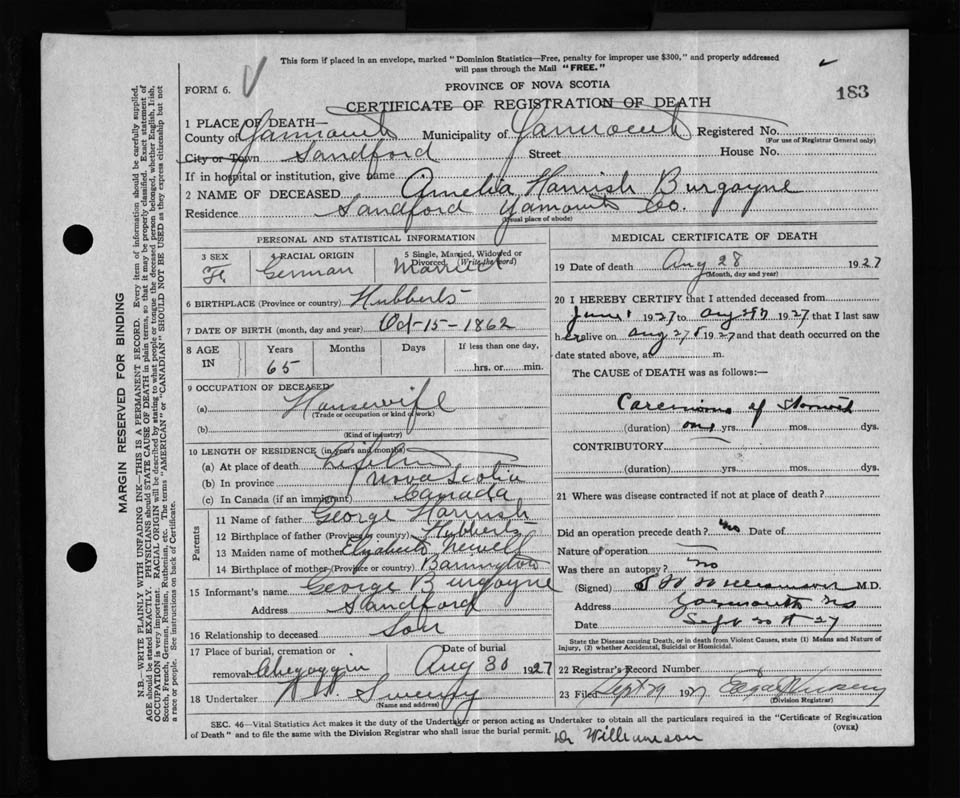 This form if placed in an envelope, marked "Dominion Statistics—Free, penalty for improper use $300," and properly addressed
will pass through the Mail "FREE."
FORM 6.
PROVINCE OF NOVA SCOTIA
183
CERTIFICATE OF REGISTRATION OF DEATH
1 PLACE OF DEATH—
County of Yarmouth Municipality of Yarmouth Registered No.
(For use of Registrar General only)
City or Town Sandford Street House No.
If in hospital or institution, give name
2 NAME OF DECEASED Amelia Harnish Burgoyne
Residence Sandford Yarmouth Co.
(Usual place of abode)
PERSONAL AND STATISTICAL INFORMATION
3 SEX F. 4 RACIAL ORIGIN German 5 Single, Married, Widowed or Divorced (Write the word) Married
6 BIRTHPLACE (Province or country) Hubberts
7 DATE OF BIRTH (month, day and year) Oct-15-1862
8 AGE IN Years 65 Months Days If less than one day, hrs. or min.
9 OCCUPATION OF DECEASED
(a) Housewife
(Trade or occupation or kind of work)
(b)
(Kind of industry)
10 LENGTH OF RESIDENCE (in years and months)
(a) At place of death
(b) In province Nova Scotia
(c) In Canada (if an immigrant) Canada
Parents
11 Name of father George Harnish
12 Birthplace of father (Province or country) Hubberts
13 Maiden name of mother Elizabeth Newell
14 Birthplace of mother (Province or country) Barrington
15 Informant's name George Burgoyne
Address Sandford
16 Relationship to deceased Son
17 Place of burial, cremation or
removal Chegoggin Aug 30 1927
18 Undertaker Sweeny
(Name and address)
MEDICAL CERTIFICATE OF DEATH
19 Date of death Aug 28 1927
(Month, day and year)
20 I HEREBY CERTIFY that I attended deceased from
June 1 1927 to Aug 1927 that I last saw
her alive on Aug 27 1927 and that death occurred on the
date stated above, at m.
The CAUSE of DEATH was as follows:—
Carcinoma of Stomach
(duration) one yrs. mos. dys.
CONTRIBUTORY
(duration) yrs. mos. dys.
21 Where was disease contracted if not at place of death?
Did an operation precede death? No Date of
Nature of operation
Was there an autopsy? No
(Signed) Williamson M.D.
Address Yarmouth NS
Date Sept 27
State the Disease causing Death, or in death from Violent Causes, state (1) Means and Nature of
Injury, (2) whether Accidental, Suicidal or Homicidal.
22 Registrar's Record Number
23 Filed Sept 29 1927
(Division Registrar)
SEC. 46—Vital Statistics Act makes it the duty of the Undertaker or person acting as Undertaker to obtain all the particulars required in the "Certificate of Registration
of Death" and to file the same with the Division Registrar who shall issue the burial permit.
(OVER)
Dr Williamson
MARGIN RESERVED FOR BINDING
N.B.—WRITE PLAINLY WITH UNFADING INK—THIS IS A PERMANENT RECORD. Every item of information should be carefully supplied.
AGE should be stated EXACTLY. PHYSICIANS should STATE CAUSE OF DEATH in plain terms, so that it may be properly classified. Exact statement of
OCCUPATION is very important. RACIAL ORIGIN will be described by stating to what people or tongue the deceased person belonged, whether English, Irish,
Scotch, French, German, Russian, Ruthenian, etc. The terms "AMERICAN" or "CANADIAN" SHOULD NOT BE USED as they express citizenship but not
a race or people. See instructions on back of Certificate.